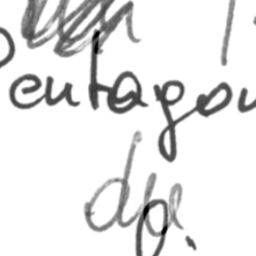 Pentagon
dp.